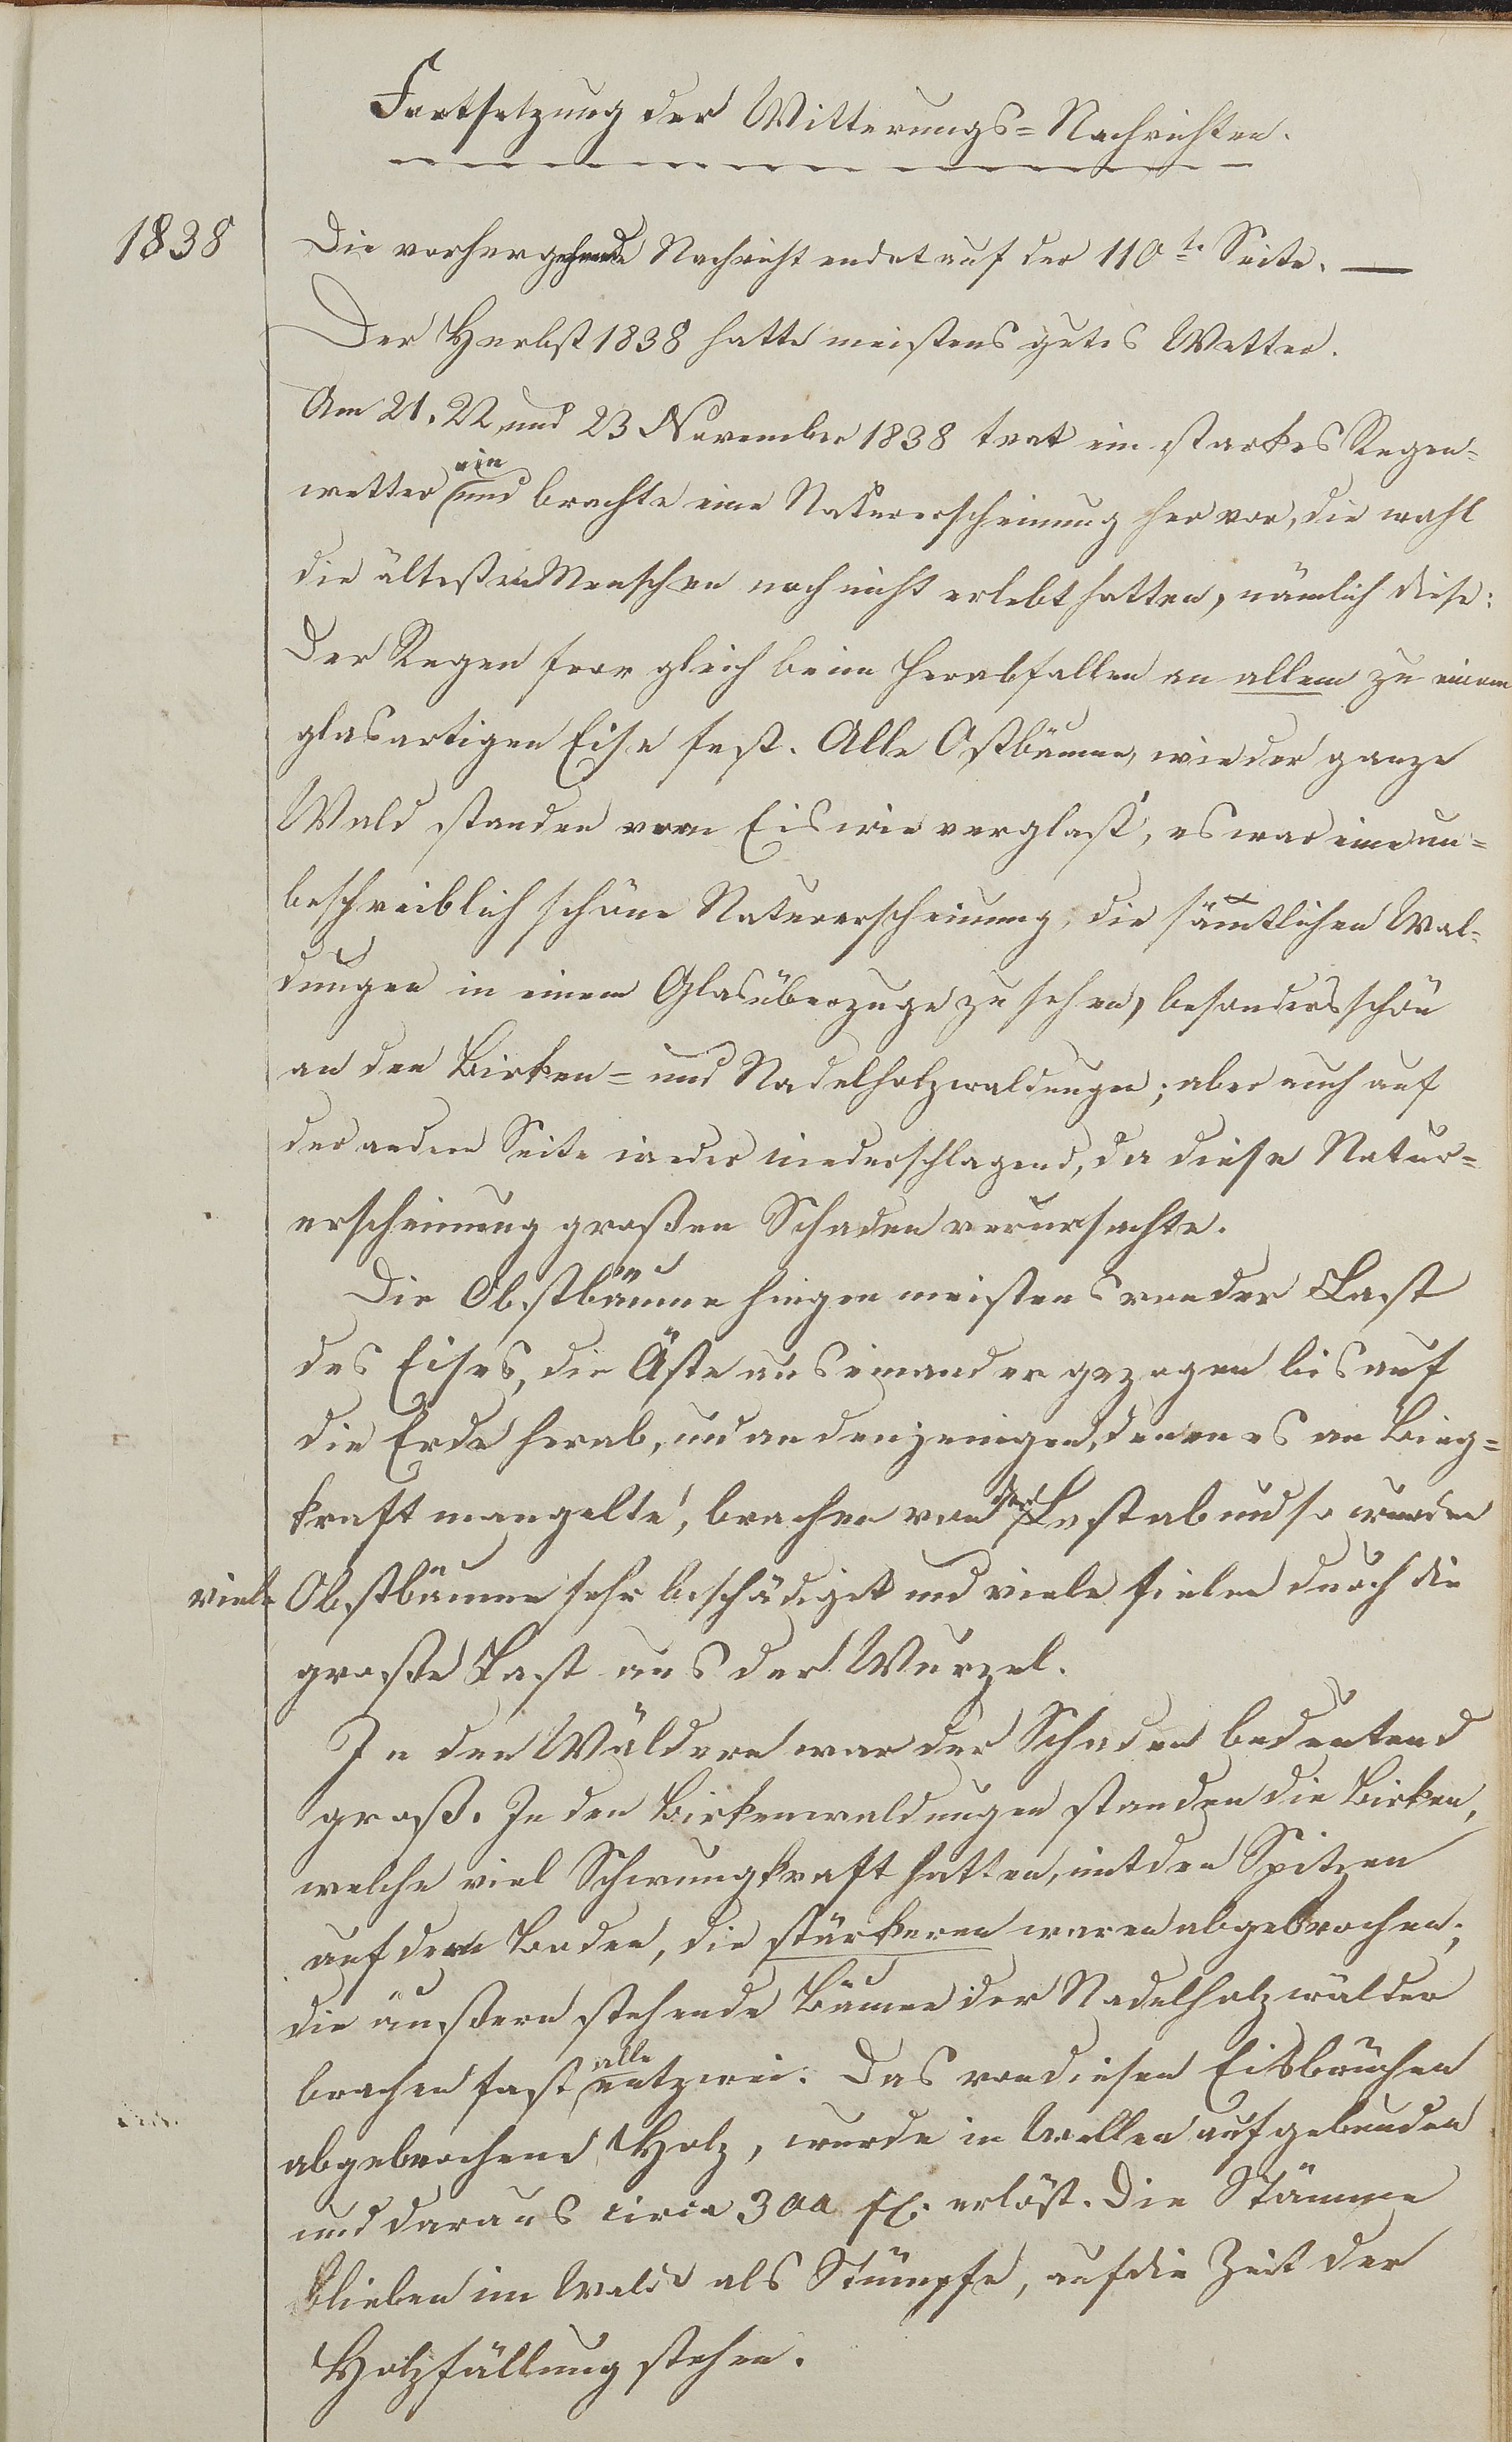 Fortsetzung der Witterungs=Nachrichten.
1838
Die vorhergehende Nachricht endet auf der 110te Seite. —
Der Herbst 1838 hatte meistens gutes Wetter.
Am 21. 22 und 23 November 1838 trat ein starkes Regen=
wetter ein und brachte eine Naturerscheinung hervor, die wohl
die ältesten Menschen noch nicht erlebt hatten, nämlich diese:
Der Regen fror gleich beim Herabfallen an allem zu einem
glasartigen Eise fest. Alle Ostbäume, wie der ganze
Wald standen vom Eis wie verglast, es war eine un=
beschreiblich schöne Naturerscheinung, die sämtlichen Wal=
dungen in einem Glasüberzuge zu sehen, besonders schön
an den Birken= und Nadelholzwaldungen; aber auch auf
der andern Seite wieder niederschlagend, da diese Natur=
erscheinung großen Schaden verursachte.
Die Obstbäume hingen meistens von der Last
des Eises, die Äste auseinander gezogen bis auf
die Erde herab, und an denjenigen, denen es an Bieg=
kraft mangelte, brachen von der Last ab und so wurden
viele Obstbäume sehr beschädiget und viele fielen durch die
große Last aus der Wurzel.
In den Wäldern war der Schaden bedeutend
groß. In den Birkenwaldungen standen die Birken,
welche viel Schwungkraft hatten, mit den Spitzen
auf dem Boden, die stärkeren waren abgebrochen;
die äußern stehende Bäume der Nadelholzwälder
brachen fast alle entzwei. Das von diesen Eisbrüchen
abgebrochene Holz, wurde in Wellen aufgebunden
und daraus circa 300 fl. erlöst. Die Stämme
blieben im Wald als Stümpfe, auf die Zeit der
Holzfällung stehen.